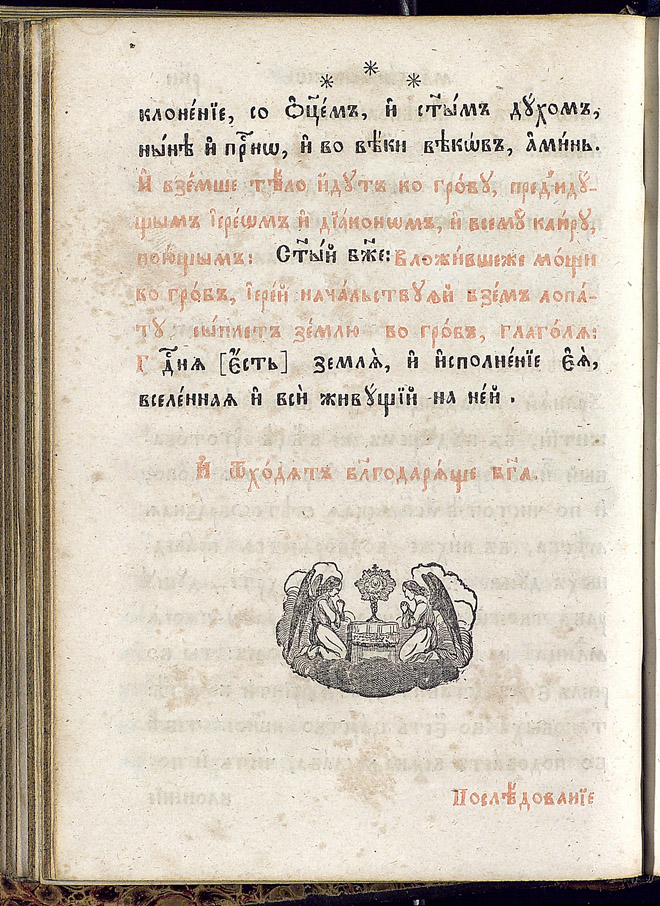 * * *
клоне́нїе, со ѻ҆ц҃е́мъ, и҆ ст҃ы́мъ дꙋ́хомъ,
ны́нѣ и҆ при́снѡ, и҆ во вѣ́ки вѣкѡ́въ, а҆ми́нь.
И҆ взе́мше тѣ́ло и҆дꙋ́тъ ко гро́бꙋ, пред̾идꙋ́-
щымъ і҆ере́ѡмъ и҆ дїа́конѡмъ, и҆ всемꙋ̀ кли́рꙋ,
пою́щымъ: Ст҃ы́й бж҃е: Вложи́вшеже мо́щи
во гро́бъ, і҆ере́й нача́льствꙋѧй взе́мъ лопа́-
тꙋ, сы́плетъ зе́млю во гро́бъ, глаго́лѧ:
Гдⷭ҇нѧ [є҆́сть] землѧ̀, и҆ и҆сполне́нїе є҆ѧ̀,
вселе́ннаѧ и҆ всѝ живꙋ́щїи на не́й.
И҆ ѿхо́дѧтъ бл҃годарѧ́ще бг҃а.
Послѣ́дованїе